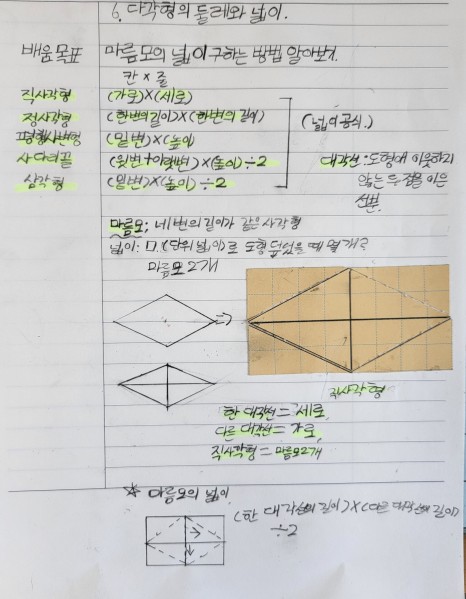 6. 다각형의 둘레와 넓이.
배움 목표 마름모의 넓이 구하는 방법 알아보자.
칸 × 줄
직사각형 (가로)×(세로)
정사각형 (한변의길이)×(한변의 길이)
평행사변형 (밑변)×(높이)
(넓이공식.)
사다리꼴 (윗변+아랫변)×(높이)÷2
삼각형 (밑변)×(높이)÷2
대각선: 도형에 이웃하지
않는 두 점을 이은
선분.
마름모; 네 변의 길이가 같은 사각형
넓이: □(단위넓이)로 도형 덮었을 때 몇 개로
마름모 2개
직사각형
한 대각선 = 세로
다른 대각선 = 가로
직사각형 = 마름모2개
☆ 마름모의 넓이
(한 대각선의 길이)×(다른 대각선의 길이)
÷2